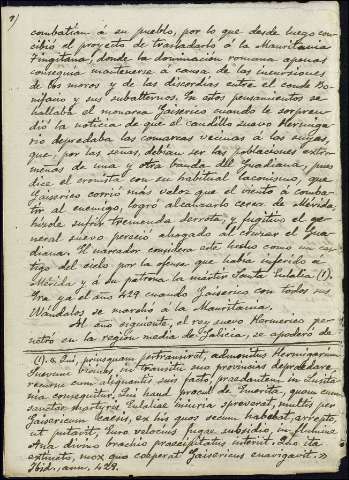 combatían á su pueblo, por lo que desde luego con-
cibió el proyecto de trasladarlo á la Mauritania
Tingitana, donde la dominación romana apenas
conseguía mantenerse a causa de las incursiones
de los moros y de las discordias entre el conde Bo-
nifacio y sus subalternos. En estos pensamientos se
hallaba el monarca Gaiserico cuando le sorpren-
dió la noticia de que el caudillo suevo Hermiga-
rio depredaba las comarcas vecinas á las suyas,
que, por las señas, debían ser las poblaciones extre-
menas de una y otra banda del Guadiana, pues
dice el cronista con su habitual laconismo, que
Gaiserico corrió más veloz que el viento á comba-
tir al enemigo, logró alcanzarlo cerca de Mérida,
hízole sufrir tremenda derrota, y fugitivo el ge-
neral suevo pereció ahogado al cruzar el Gua-
diana. El narrador considera este hecho como un cas-
tigo del cielo por la ofensa que había inferido á
Mérida y á su patrona la mártir Santa Eulalia (1).
Era ya el año 429 cuando Gaiserico con todos sus
Wándalos se marchó a la Mauritania.
Al año siguiente, el rey suevo Hermerico pe-
netró en la región media de Galicia, se apoderó de
(1). « Qui, priusquam pertransiret, admonitus Hermigarium
Suevum vicinas in transitu suo provincias depredare,
recurso cum aliquantis suis facto, praedantem in Lusita-
nia consequitur. Qui haud procul de Emerita, quam cum
sanctae martyris Eulaliae injuria spreverat, multis per
Gaisericum caesis, ex his quos secum habebat, arrepto,
ut putavit, Euro velocius fugae subsidio, in flumine
Ana divino brachio praecipitatus interiit. Quo ita
extincto, mox quo coeperat Gaisericus enavigavit. »
Ibid., ann. 429.